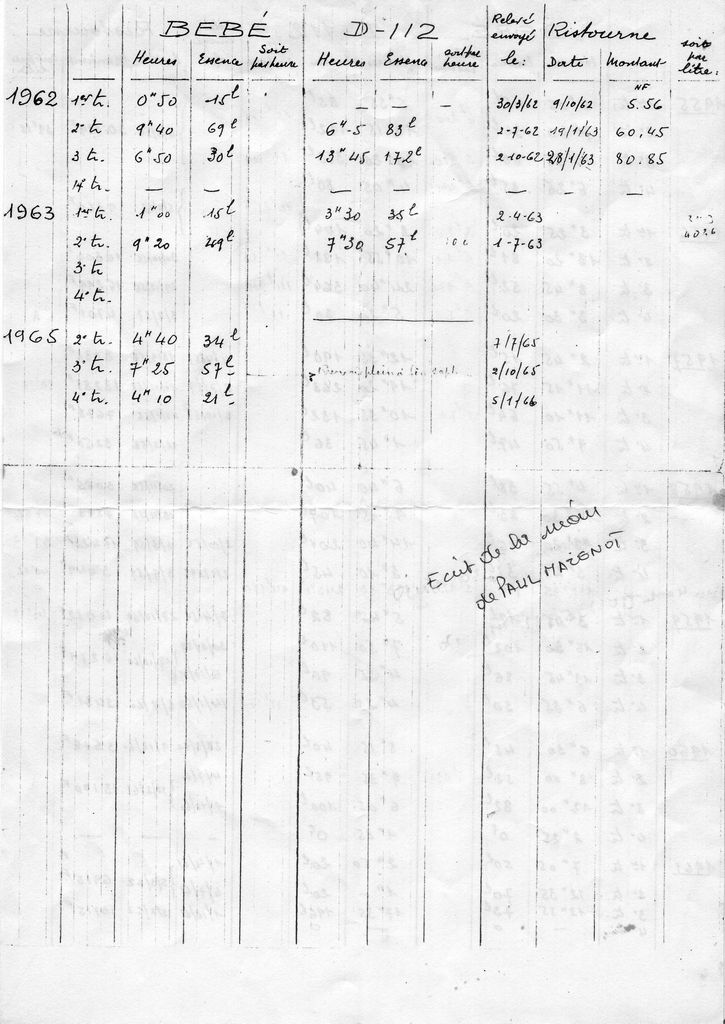 BEBÉ D-112 Relevé envoyé le: Ristourne soit par litre:
Heures Essence Soit par heure Heures Essence soit par heure Date Montant
1962 1er tr. 0h50 15l — — — 30/3/62 9/10/62 NF 5.56
2e tr. 9h40 69l 6h-5 83l 2-7-62 19/1/63 60,45
3 tr. 6h50 30l 13h45 172l 2-10-62 28/1/63 80.85
4 tr. — — — — — — —
1963 1er tr. 1h00 15l 3h30 35l 2-4-63
2e tr. 9h20 49l 7h30 57l 1-7-63
3e tr
4e tr.
1965 2e tr. 4h40 34l 7/7/65
3e tr. 7h25 57l 2/10/65
4e tr. 4h10 21l 5/1/66
Ecrit de la main
de PAUL MAZENOT